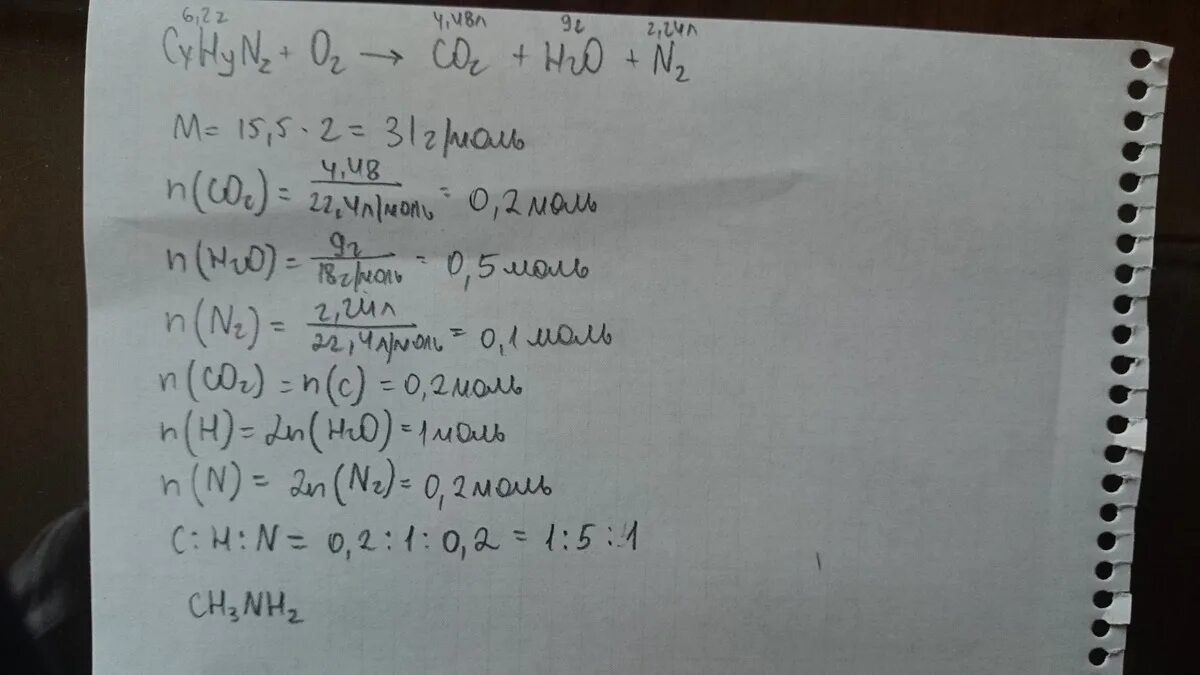 6,2г 4,48л 9г 2,24л
CxHyNz + O2 → CO2 + H2O + N2
M = 15,5 · 2 = 31г/моль
n(CO2) = 4,48 / 22,4л/моль = 0,2моль
n(H2O) = 9г / 18г/моль = 0,5моль
n(N2) = 2,24л / 22,4л/моль = 0,1моль
n(CO2) = n(C) = 0,2моль
n(H) = 2n(H2O) = 1моль
n(N) = 2n(N2) = 0,2моль
C:H:N = 0,2:1:0,2 = 1:5:1
CH3NH2